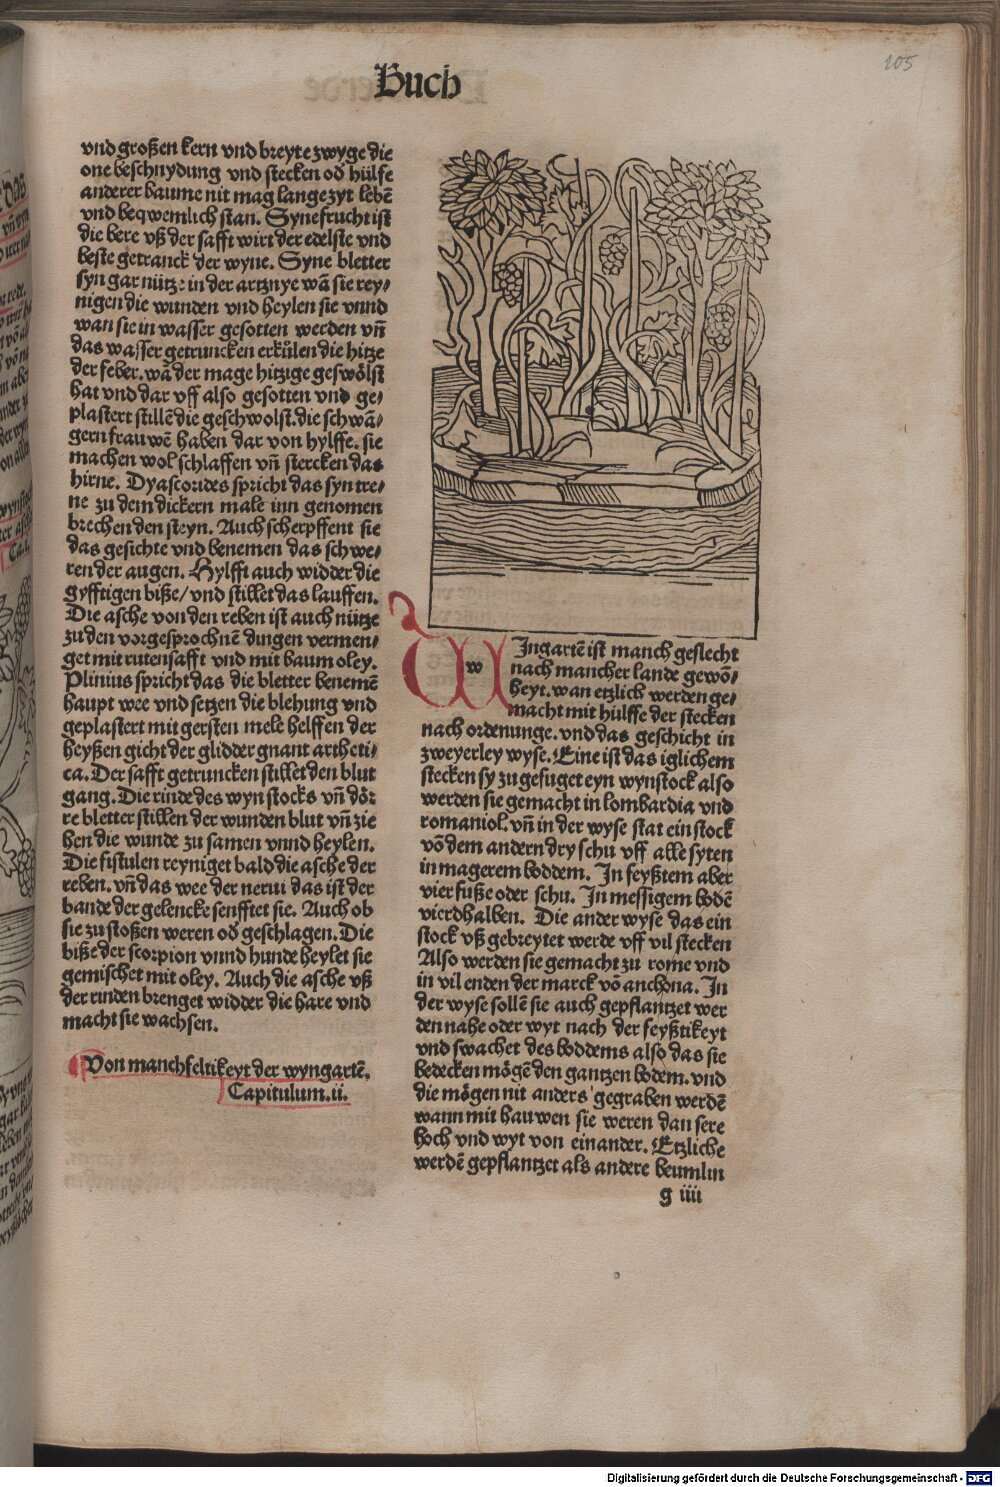 105
Buch
vnd großen kern vnd breyte zwyge die
one beschnydung vnd stecken od̄ hülfe
anderer baume nit mag lange zyt lebē
vnd beqwemlich stan. Syne frucht ist
die bere vß der safft wirt der edelste vnd
beste getranck der wyne. Syne bletter
syn gar nütze in der artznye wā sie rey⸗
nigen die wunden vnd heylen sie vnnd
wan sie in wasser gesotten werden vñ
das wasser getruncken erkůlen die hitze
der feber. wā der mage hitzige geswölst
hat vnd dar vff also gesotten vnd ge⸗
plastert stillē die geschwolst. die schwā⸗
gern frauwē haben dar von hylffe. sie
machen wol schlaffen vñ stercken das
hirne. Dyascorides spricht das syn tre⸗
ne zu dem dickern male inn genomen
brechen den steyn. Auch scherpffent sie
das gesichte vnd benemen das schwe⸗
ren der augen. Hylfft auch widder die
gyfftigen biße/ vnd stillet das lauffen.
Die asche von den reben ist auch nütze
zu den vorgesprochnē dingen vermen⸗
get mit rutensafft vnd mit baum oley.
Plinius spricht das die bletter benemē
haupt wee vnd setzen die blehung vnd
geplastert mit gersten mele helffen der
heyßen gicht der glidder gnant artheti⸗
ca. Der safft getruncken stillet den blut
gang. Die rinde des wynstocks vñ dör
re bletter stillen der wunden blut vñ zie
hen die wunde zu samen vnnd heylen.
Die fistulen reyniget bald die asche der
reben. vñ das wee der nerui das ist der
bande der gelencke senfftet sie. Auch ob
sie zu stoßen weren od̄ geschlagen. Die
biße der scorpion vnnd hunde heylet sie
gemischet mit oley. Auch die asche vß
der rinden brenget widder die hare vnd
macht sie wachsen.
Von manchfeltikeyt der wyngartē.
Capitulum.ii.
w Ingartē ist manch geslecht
nach mancher lande gewō⸗
heyt. wan etzlich werden ge⸗
macht mit hülffe der stecken
nach ordenunge. vnd das geschicht in
zweyerley wyse. Eine ist das iglichem
stecken sy zu gefuget eyn wynstock also
werden sie gemacht in lombardia vnd
romaniol. vñ in der wyse stat ein stock
vō dem andern dry schu vff alle syten
in magerem boddem. In feyßtem aber
vier fuße oder schu. In messigem bodē
vierdhalben. Die ander wyse das ein
stock vß gebreytet werde vff vil stecken
Also werden sie gemacht zu rome vnd
in vil enden der marck vō anchona. In
der wyse sollē sie auch gepflantzet wer
den nahe oder wyt nach der feyßtikeyt
vnd swachet des boddems also das sie
bedecken mögē den gantzen bodem. vnd
die mögen nit anders gegraben werdē
wann mit hauwen sie weren dan sere
hoch vnd wyt von einander. Etzliche
werdē gepflantzet als andere beumlin
g iiii
Digitalisierung gefördert durch die Deutsche Forschungsgemeinschaft - DFG